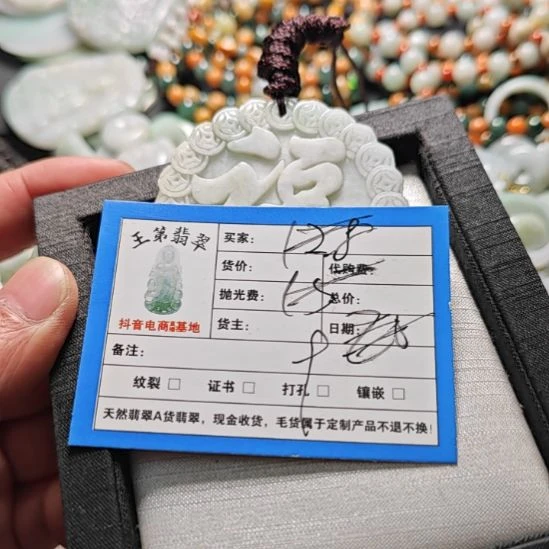 王第翡翠
买家: 128
货价: 代购费:
抛光费: 15 总价:
抖音电商基地
货主: 日期:
备注:
纹裂 □ 证书 □ 打孔 □ 镶嵌 □
天然翡翠A货翡翠，现金收货，毛货属于定制产品不退不换!